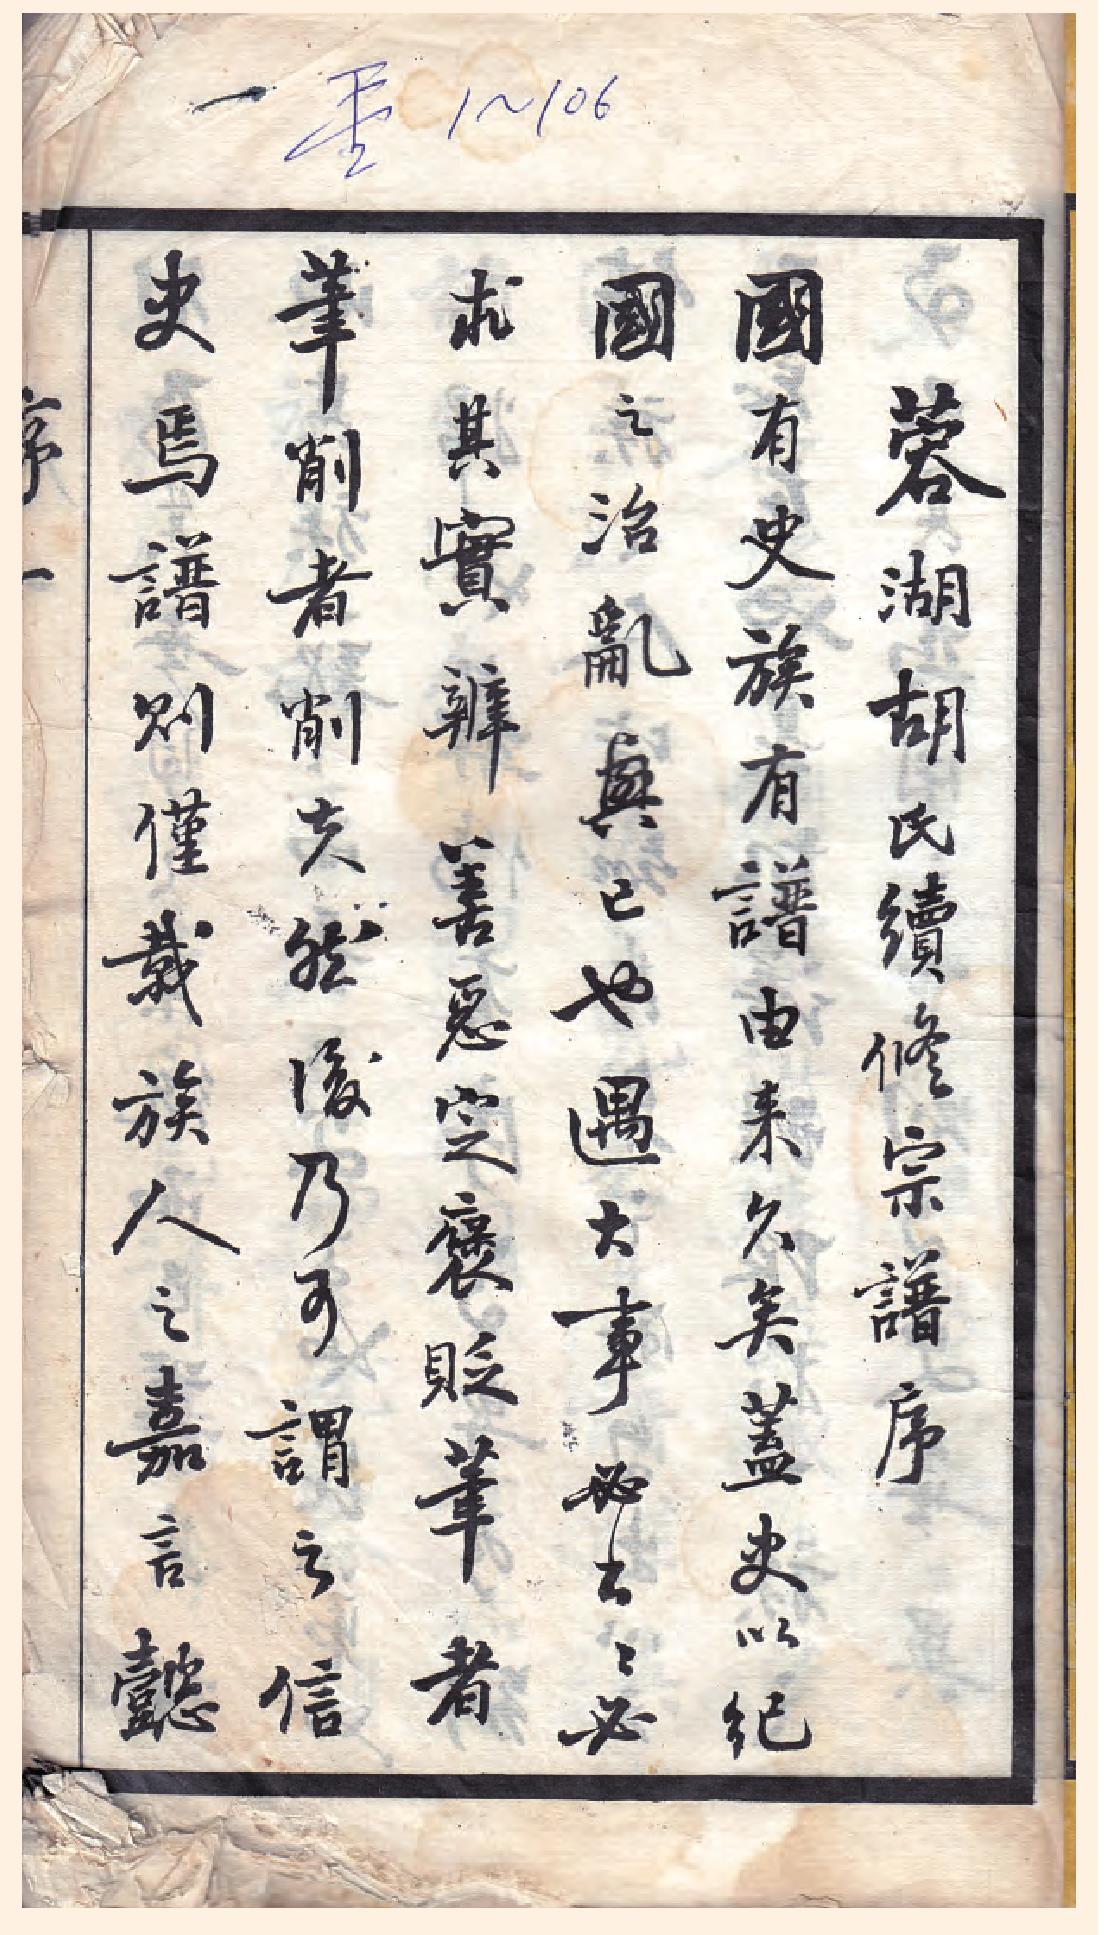 一 1~106
蓉湖胡氏續修宗譜序
國有史族有譜由来久矣蓋史以紀
國之治亂與亡也遇大事必書〻必
求其實辨善惡定褒貶筆者
筆削者削夫然後乃可謂之信
史焉譜則僅載族人之嘉言懿
序
一